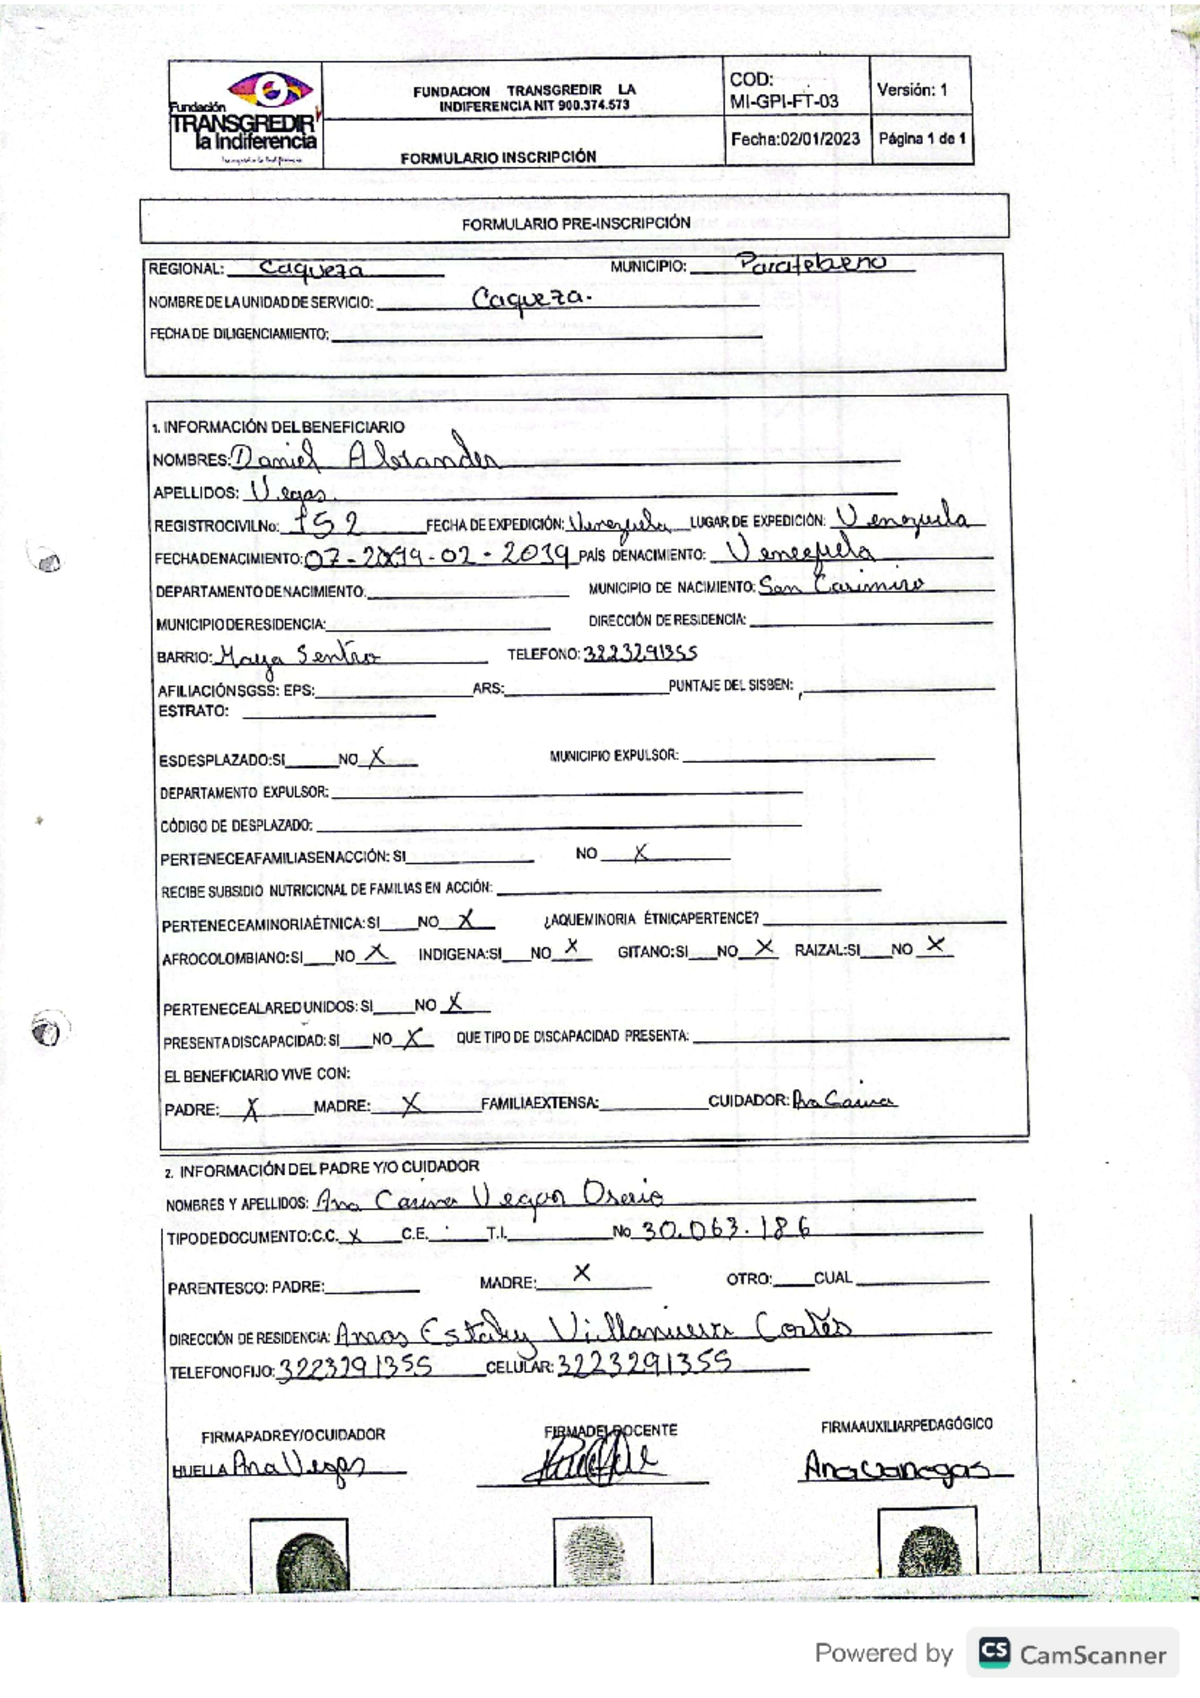 Fundación
TRANSGREDIR
la Indiferencia
FUNDACION TRANSGREDIR LA
INDIFERENCIA NIT 900.374.573
FORMULARIO INSCRIPCIÓN
COD:
MI-GPI-FT-03
Versión: 1
Fecha:02/01/2023
Página 1 de 1
FORMULARIO PRE-INSCRIPCIÓN
REGIONAL: Caqueza MUNICIPIO: Paratebueno
NOMBRE DE LA UNIDAD DE SERVICIO: Caqueza.
FECHA DE DILIGENCIAMIENTO:
1. INFORMACIÓN DEL BENEFICIARIO
NOMBRES: Daniel Alexander
APELLIDOS: Vegas.
REGISTROCIVILNo: 152 FECHA DE EXPEDICIÓN: Venezuela LUGAR DE EXPEDICIÓN: Venezuela
FECHADENACIMIENTO: 07- -02-2019 PAÍS DENACIMIENTO: Venezuela
DEPARTAMENTODENACIMIENTO: MUNICIPIO DE NACIMIENTO: San Casimiro
MUNICIPIODERESIDENCIA: DIRECCIÓN DE RESIDENCIA:
BARRIO: Maya Sentro TELEFONO: 3223291355
AFILIACIÓNSGSS: EPS: ARS: PUNTAJE DEL SISBEN:
ESTRATO:
ESDESPLAZADO:SI NO X MUNICIPIO EXPULSOR:
DEPARTAMENTO EXPULSOR:
CÓDIGO DE DESPLAZADO:
PERTENECEAFAMILIASENACCIÓN: SI NO X
RECIBE SUBSIDIO NUTRICIONAL DE FAMILIAS EN ACCIÓN:
PERTENECEAMINORIAÉTNICA:SI NO X ¿AQUEMINORIA ÉTNICAPERTENCE?
AFROCOLOMBIANO:SI NO X INDIGENA:SI NO X GITANO:SI NO X RAIZAL:SI NO X
PERTENECEALAREDUNIDOS: SI NO X
PRESENTADISCAPACIDAD: SI NO X QUE TIPO DE DISCAPACIDAD PRESENTA:
EL BENEFICIARIO VIVE CON:
PADRE: X MADRE: X FAMILIAEXTENSA: CUIDADOR: Ana Carina
2. INFORMACIÓN DEL PADRE Y/O CUIDADOR
NOMBRES Y APELLIDOS: Ana Carina Vegas Osorio
TIPODEDOCUMENTO:C.C. X C.E. T.I. No 30.063.186
PARENTESCO: PADRE: MADRE: X OTRO: CUAL
DIRECCIÓN DE RESIDENCIA: Amos Estaby Villanueva Cortés
TELEFONOFIJO: 3223291355 CELULAR: 3223291355
FIRMAPADREY/OCUIDADOR FIRMADELDOCENTE FIRMAAUXILIARPEDAGÓGICO
HUELLA Ana Vegas Ana vanegas
Powered by CS CamScanner